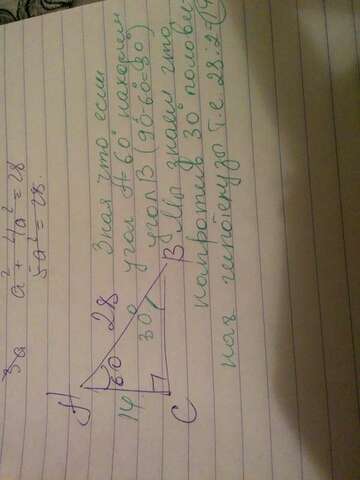 3a
a² + 4a² = 28
5a² = 28.
A
60°
28
14
30°
C
B
Зная что если
угол A 60° находим
угол B (90-60=30)
Мы знаем что
напротив 30° полови-
на гипотенузы т.е. 28:2=14